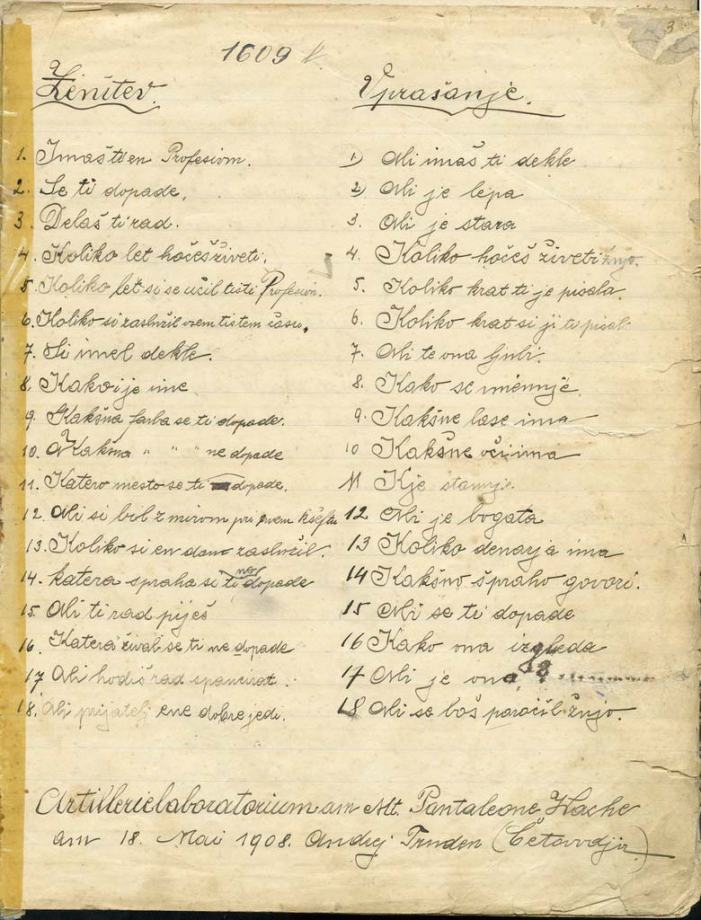 3
1609
Ženitev. Vprašanje.
1. Imaš ti en Profesiom. 1) Ali imaš ti dekle
2. Se ti dopade. 2) Ali je lepa
3. Delaš ti rad. 3. Ali je stara
4. Koliko let hočeš živeti. 4. Koliko hočeš živeti žnjo.
5. Koliko let si se učil tisti Profesiom. 5. Koliko krat ti je pisala.
6. Koliko si zaslužil vsem tistem času. 6. Koliko krat si ji ti pisal
7. Si imel dekle. 7. Ali te ona ljubi.
8. Kako je ime 8. Kako se imenuje.
9. Kakšna farba se ti dopade. 9. Kakšne lase ima
10. Kakšna " " ne dopade 10 Kakšne oči ima
11. Katero mesto se ti dopade. 11 Kje stanuje
12. Ali si bil z mirom pri 12 Ali je bogata
13. Koliko si en dan zaslužil. 13 Koliko denarja ima
14. katera spraha si ti ne dopade 14 Kakšno špraho govori.
15. Ali ti rad piješ 15 Ali se ti dopade
16. Katera žival se ti ne dopade 16 Kako ona izgleda
17 Ali hodiš rad špancirat. 17 Ali je ona
18. Ali prijatelj ene dobre jedi. 18 Ali se boš paročil žnjo.
Artillerielaboratorium am Mt. Pantaleone
am 18. Mai 1908. Andrej Truden